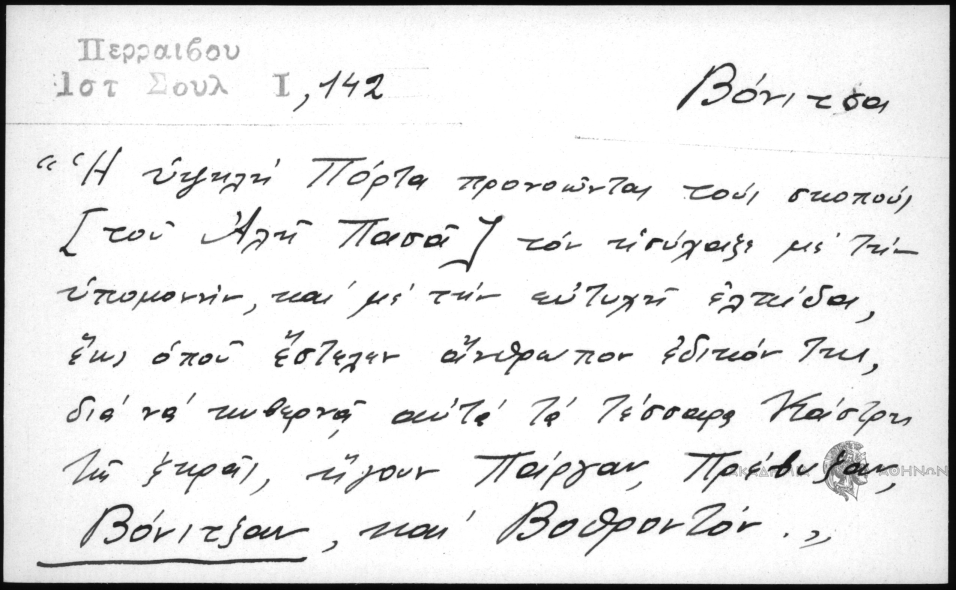 Περραιβου
Ιστ Σουλ Ι, 142
Βόνιτσα
“Ἡ ὑψηλὴ Πόρτα προνοῶντας τοὺς σκοποὺς
[τοῦ Ἀλῆ Πασᾶ] τὸν ἡσύχαξε μὲ τὴν
ὑπομονὴν, καὶ μὲ τὴν εὐτυχῆ ἐλπίδα,
ἕως ὁποῦ ἔστελεν ἄνθρωπον ἐδικόν της,
διὰ νὰ κυβερνᾷ αὐτὰ τὰ τέσσαρα Κάστρη
τῆς ξηρᾶς, ἤγουν Πάργαν, Πρέβυζαν,
Βόνιτζαν, καὶ Βοθροντόν.„
ΑΚΑΔΗΜΙΑ ΑΘΗΝΩΝ